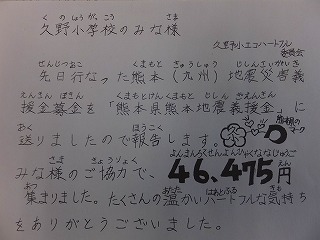 くのしょうがっこう　さま
久野小学校のみな様
久野小エコハートフル
委員会
せんじつおこ　くまもと　きゅうしゅう　じしんさいがいぎ
先日行なった熊本（九州）地震災害義
えんきんぼきん　くまもとけんくまもとじしんぎえんきん
援金募金を「熊本県熊本地震義援金」に
おく　ほうこく
送りましたので報告します。
マーク
さま　きょうりょく　よんまんろくせんよんひゃくななじゅうご　えん
みな様のご協力で、46,475円
あつ　あたた　はあとふる　きも
集まりました。たくさんの温かいハートフルな気持ち
をありがとうございました。